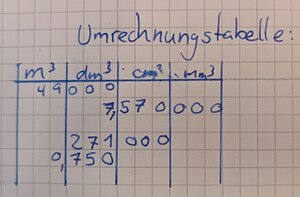 Umrechnungstabelle:
m³ dm³ cm³ mm³
49 000
7, 570 000
271 000
0, 750